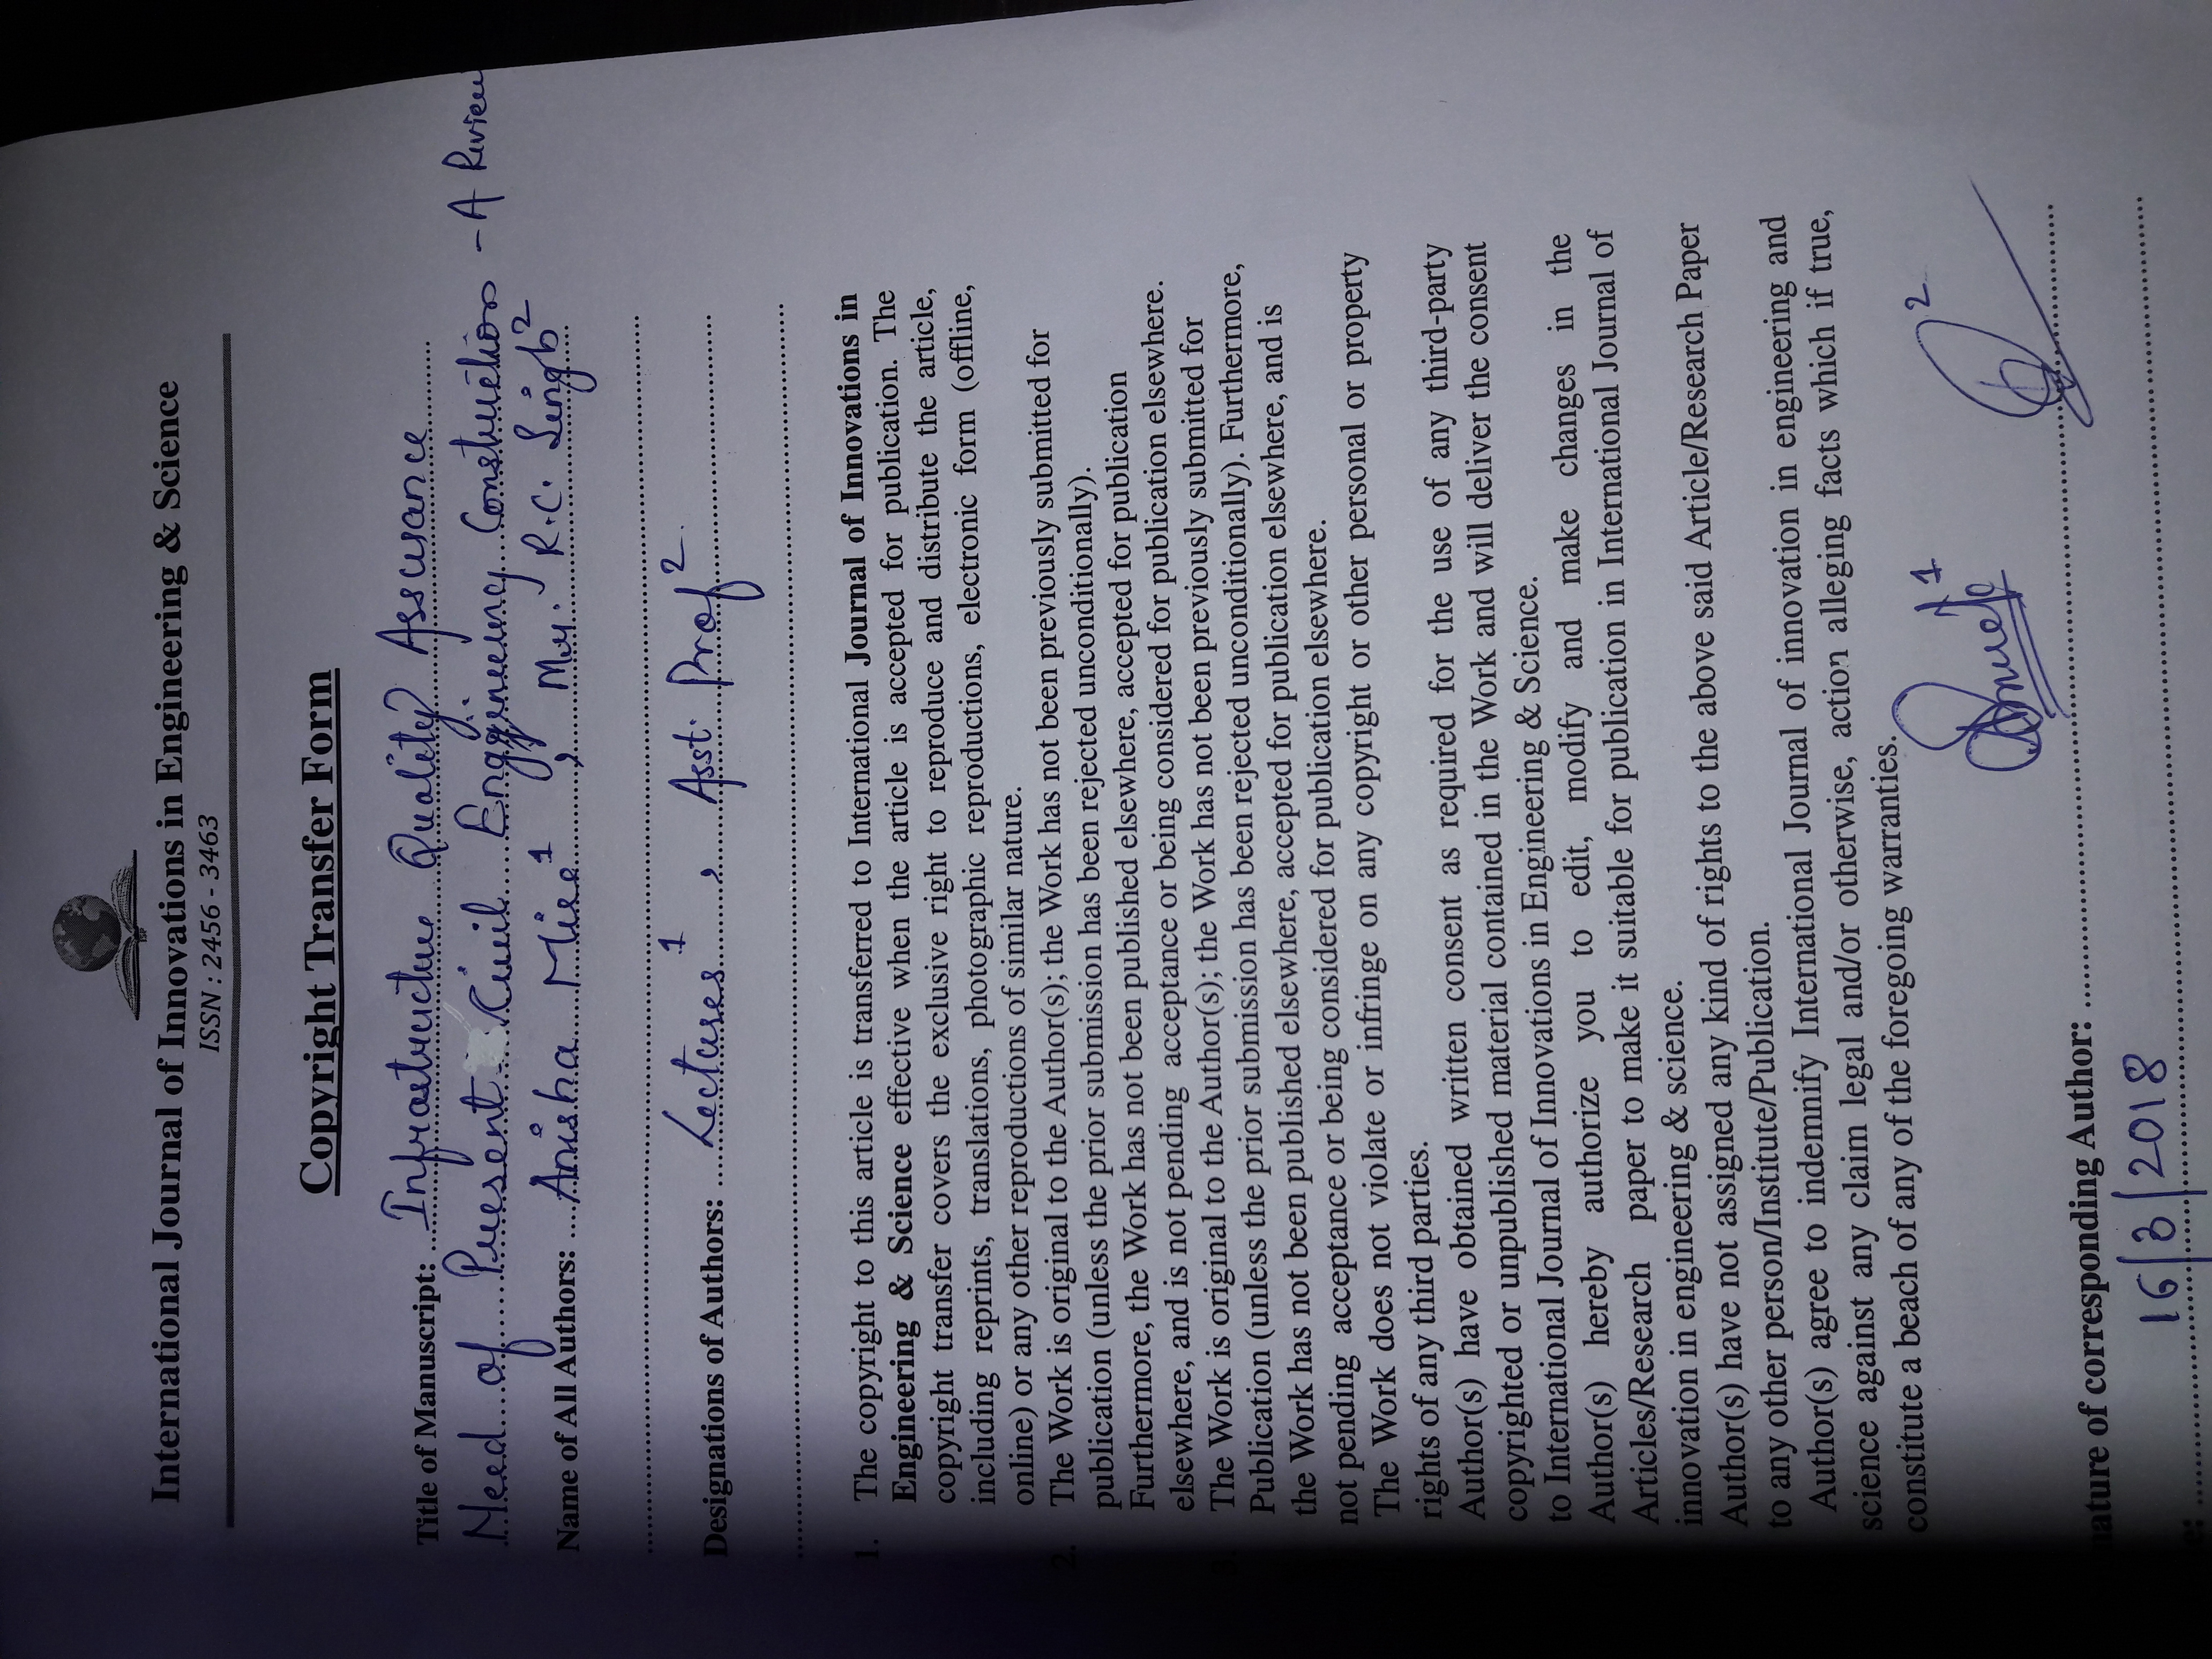 International Journal of Innovations in Engineering & Science
ISSN : 2456 - 3463
Copyright Transfer Form
Title of Manuscript: Infrastructure Quality Assurance
Need of Present Civil Enggineering Construction - A Review
Name of All Authors: Anisha 1, Mr. R.C. Singh 2
Designations of Authors: Lectures 1, Asst. Prof 2
1. The copyright to this article is transferred to International Journal of Innovations in
Engineering & Science effective when the article is accepted for publication. The
copyright transfer covers the exclusive right to reproduce and distribute the article,
including reprints, translations, photographic reproductions, electronic form (offline,
online) or any other reproductions of similar nature.
2. The Work is original to the Author(s); the Work has not been previously submitted for
publication (unless the prior submission has been rejected unconditionally).
Furthermore, the Work has not been published elsewhere, accepted for publication
elsewhere, and is not pending acceptance or being considered for publication elsewhere.
3. The Work is original to the Author(s); the Work has not been previously submitted for
Publication (unless the prior submission has been rejected unconditionally). Furthermore,
the Work has not been published elsewhere, accepted for publication elsewhere, and is
not pending acceptance or being considered for publication elsewhere.
The Work does not violate or infringe on any copyright or other personal or property
rights of any third parties.
Author(s) have obtained written consent as required for the use of any third-party
copyrighted or unpublished material contained in the Work and will deliver the consent
to International Journal of Innovations in Engineering & Science.
Author(s) hereby authorize you to edit, modify and make changes in the
Articles/Research paper to make it suitable for publication in International Journal of
innovation in engineering & science.
Author(s) have not assigned any kind of rights to the above said Article/Research Paper
to any other person/Institute/Publication.
Author(s) agree to indemnify International Journal of innovation in engineering and
science against any claim legal and/or otherwise, action alleging facts which if true,
constitute a beach of any of the foregoing warranties.
1 2
nature of corresponding Author:
16/3/2018